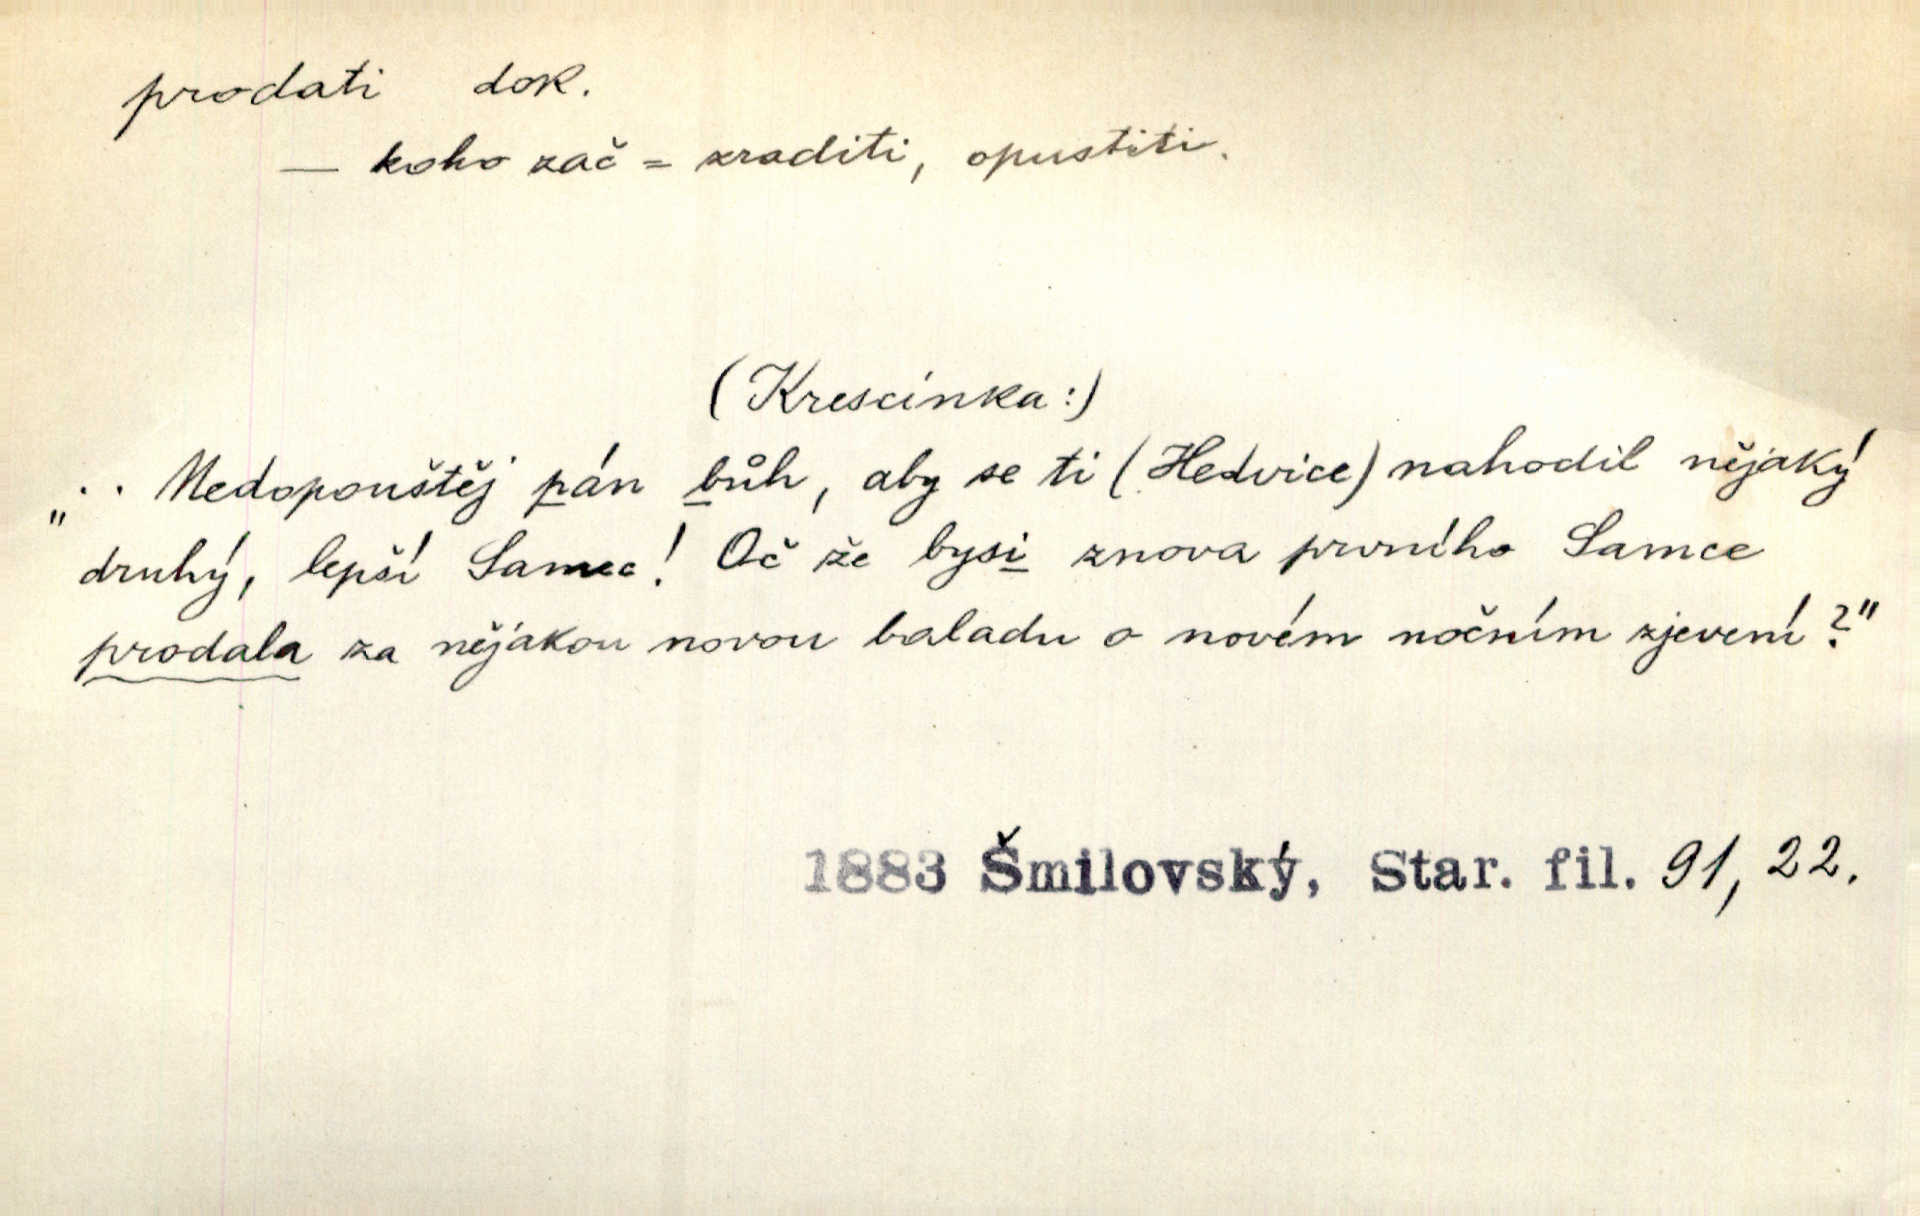 prodati dok.
— koho zač = zraditi, opustiti.
(Krescinka:)
„.. Nedopouštěj pán bůh, aby se ti (Hedvice) nahodil nějaký
druhý, lepší Samec! Oč že bysi znova prvního Samce
prodala za nějakou novou baladu o novém nočním zjevení?"
1883 Šmilovský, Star. fil. 91, 22.